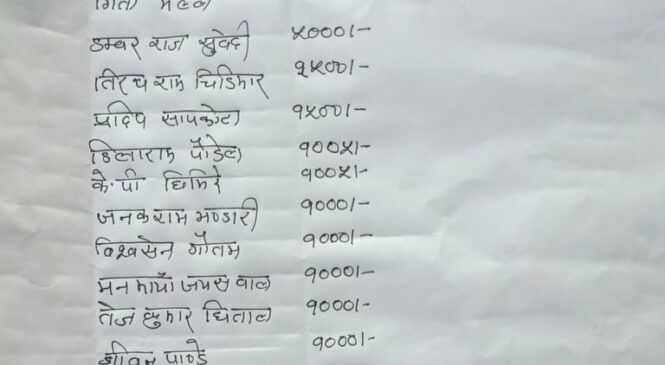 डम्बर राज सुवेदी ५०००१/-
तिरथ राम चिडिमार १५००१/-
प्रदिप सापकोटा १५००१/-
डिलाराम पौडेल १००५१/-
के.पी घिमिरे १००५१/-
जनकराम भण्डारी १०००१/-
विश्वसेन गौतम १०००१/-
मन माया जयसवाल १०००१/-
तेज कुमार धिताल १०००१/-
पाण्डे १०००१/-